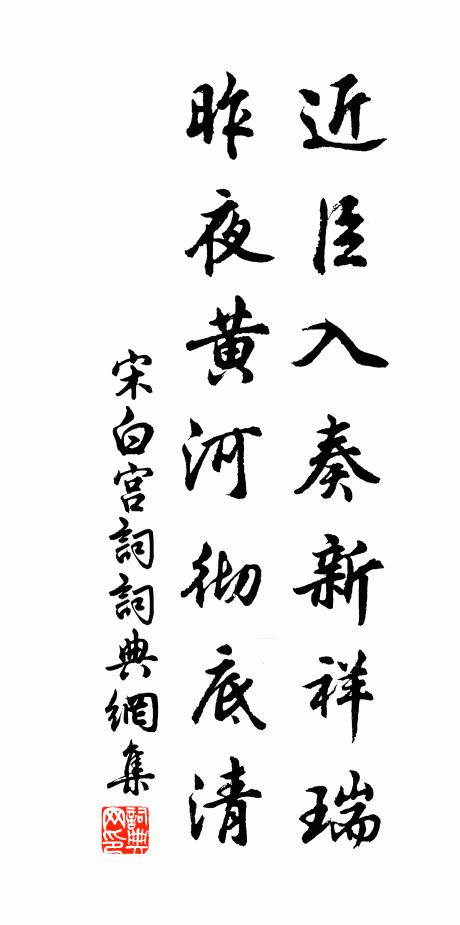 近臣入奏新祥瑞
昨夜黄河彻底清
宋白宫詞詞典網集
詞典网印